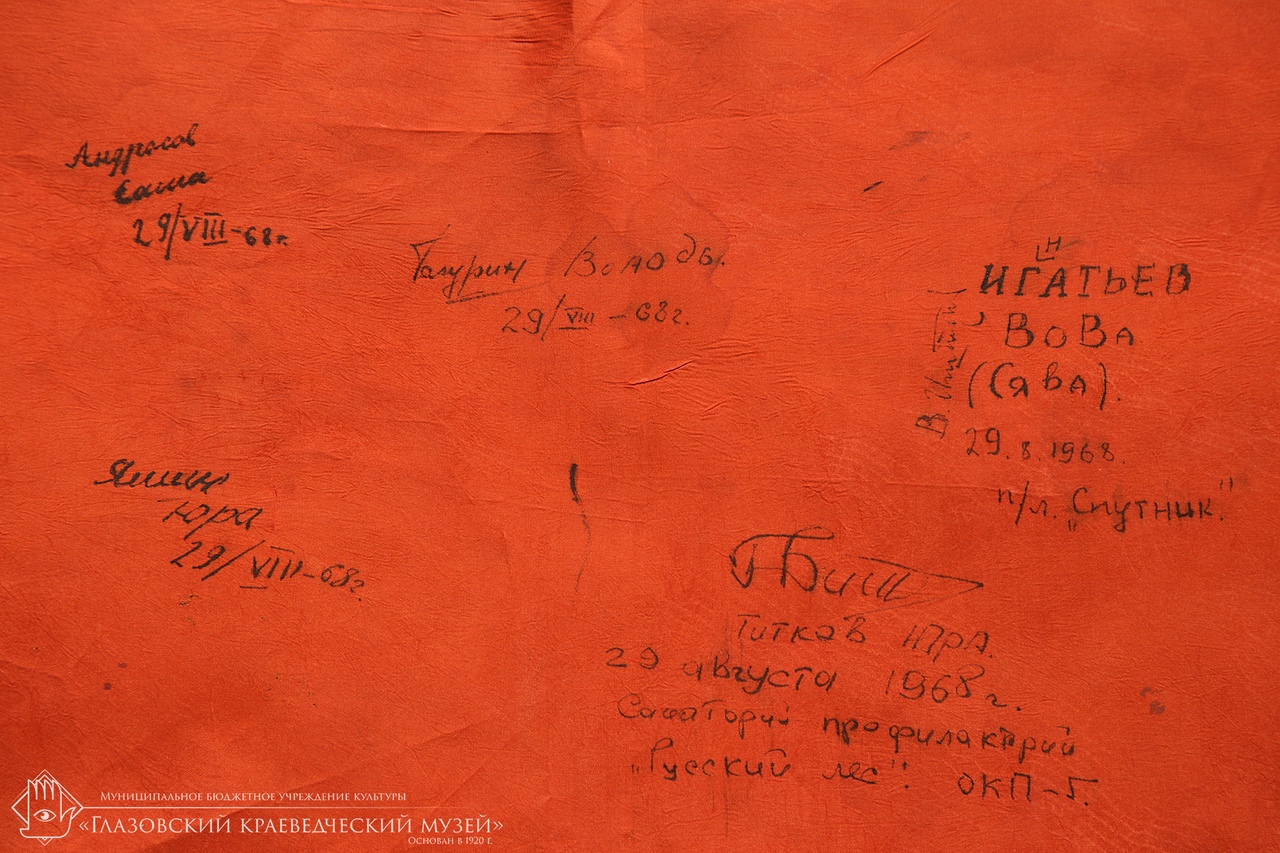 Андросов
Саша
29/VIII-68г.
Володы.
29/VIII-68г.
Н
ИГАТЬЕВ
ВОВА
(СЯВА).
29.8.1968.
п/л. „Спутник."
Яшин
Юра
29/VIII-68г.
Титков Юра.
29 августа 1968 г.
Санаторий профилакторий
„Русский лес". ОКП-Г.
Муниципальное бюджетное учреждение культуры
«Глазовский краеведческий музей»
Основан в 1920 г.